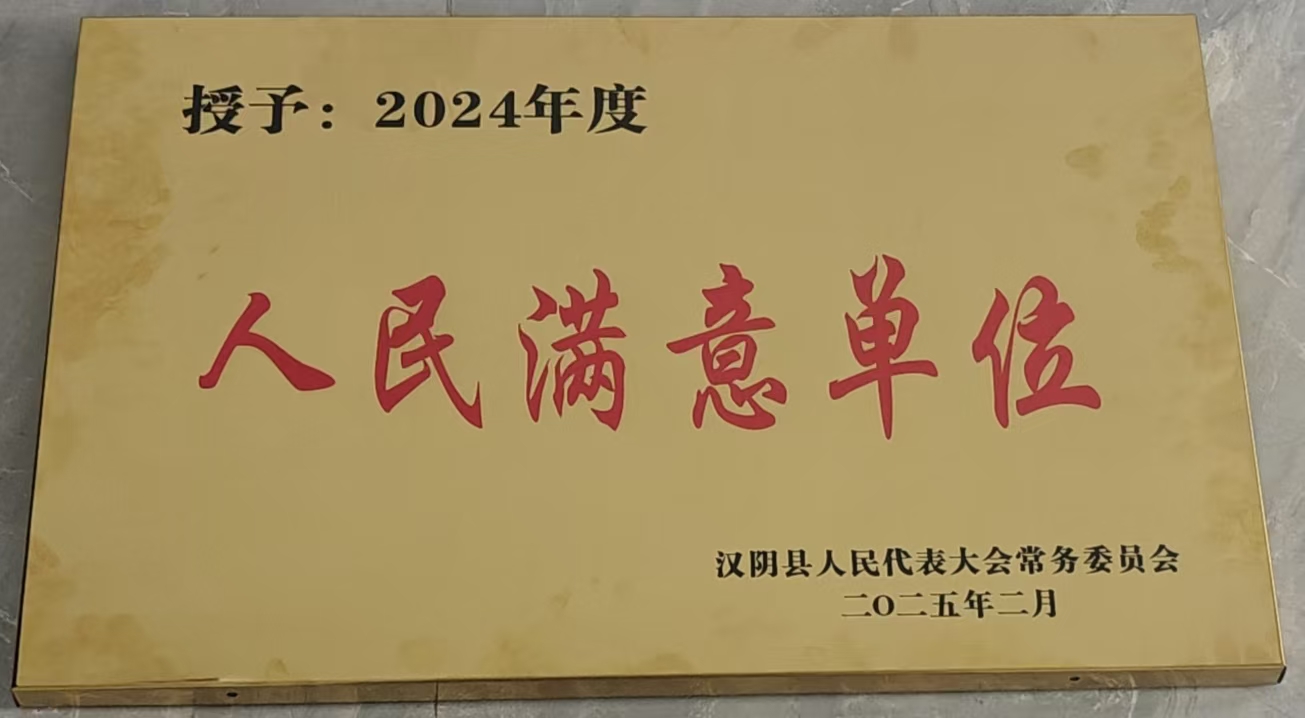 授予：2024年度
人民满意单位
汉阴县人民代表大会常务委员会
二〇二五年二月